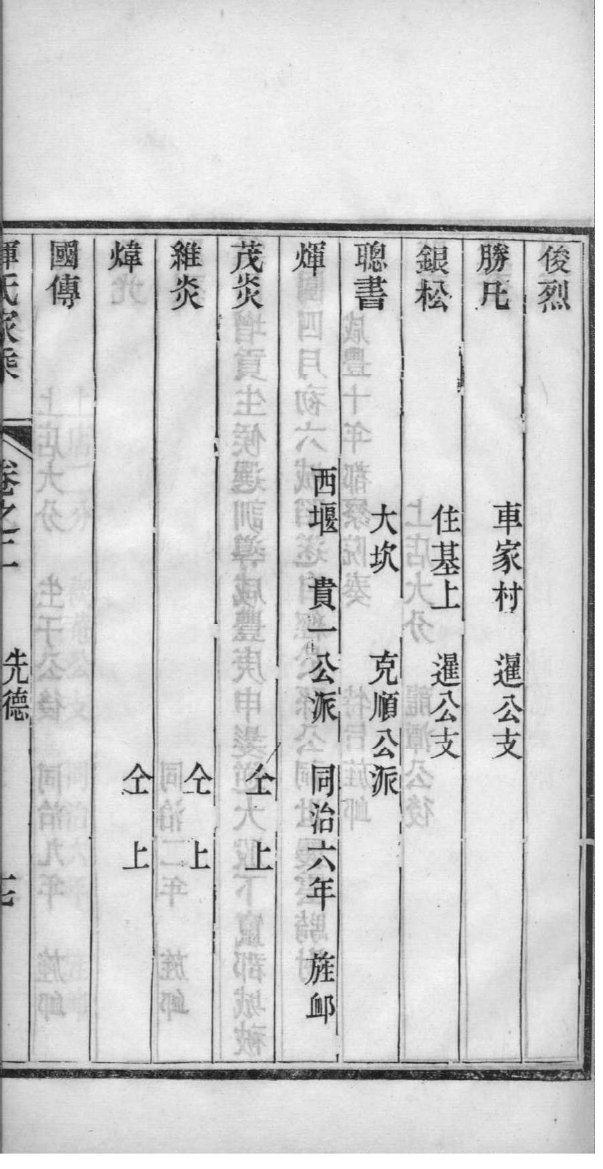 俊烈
勝凡 車家村 暹公支
銀松 住基上 暹公支
聰書 大坎 克順公派
煇 西堰 貴一公派 同治六年 旌䘏
茂炎 仝上
維炎 仝上
煒 仝上
國傳
惲氏家乘 卷之二 先德